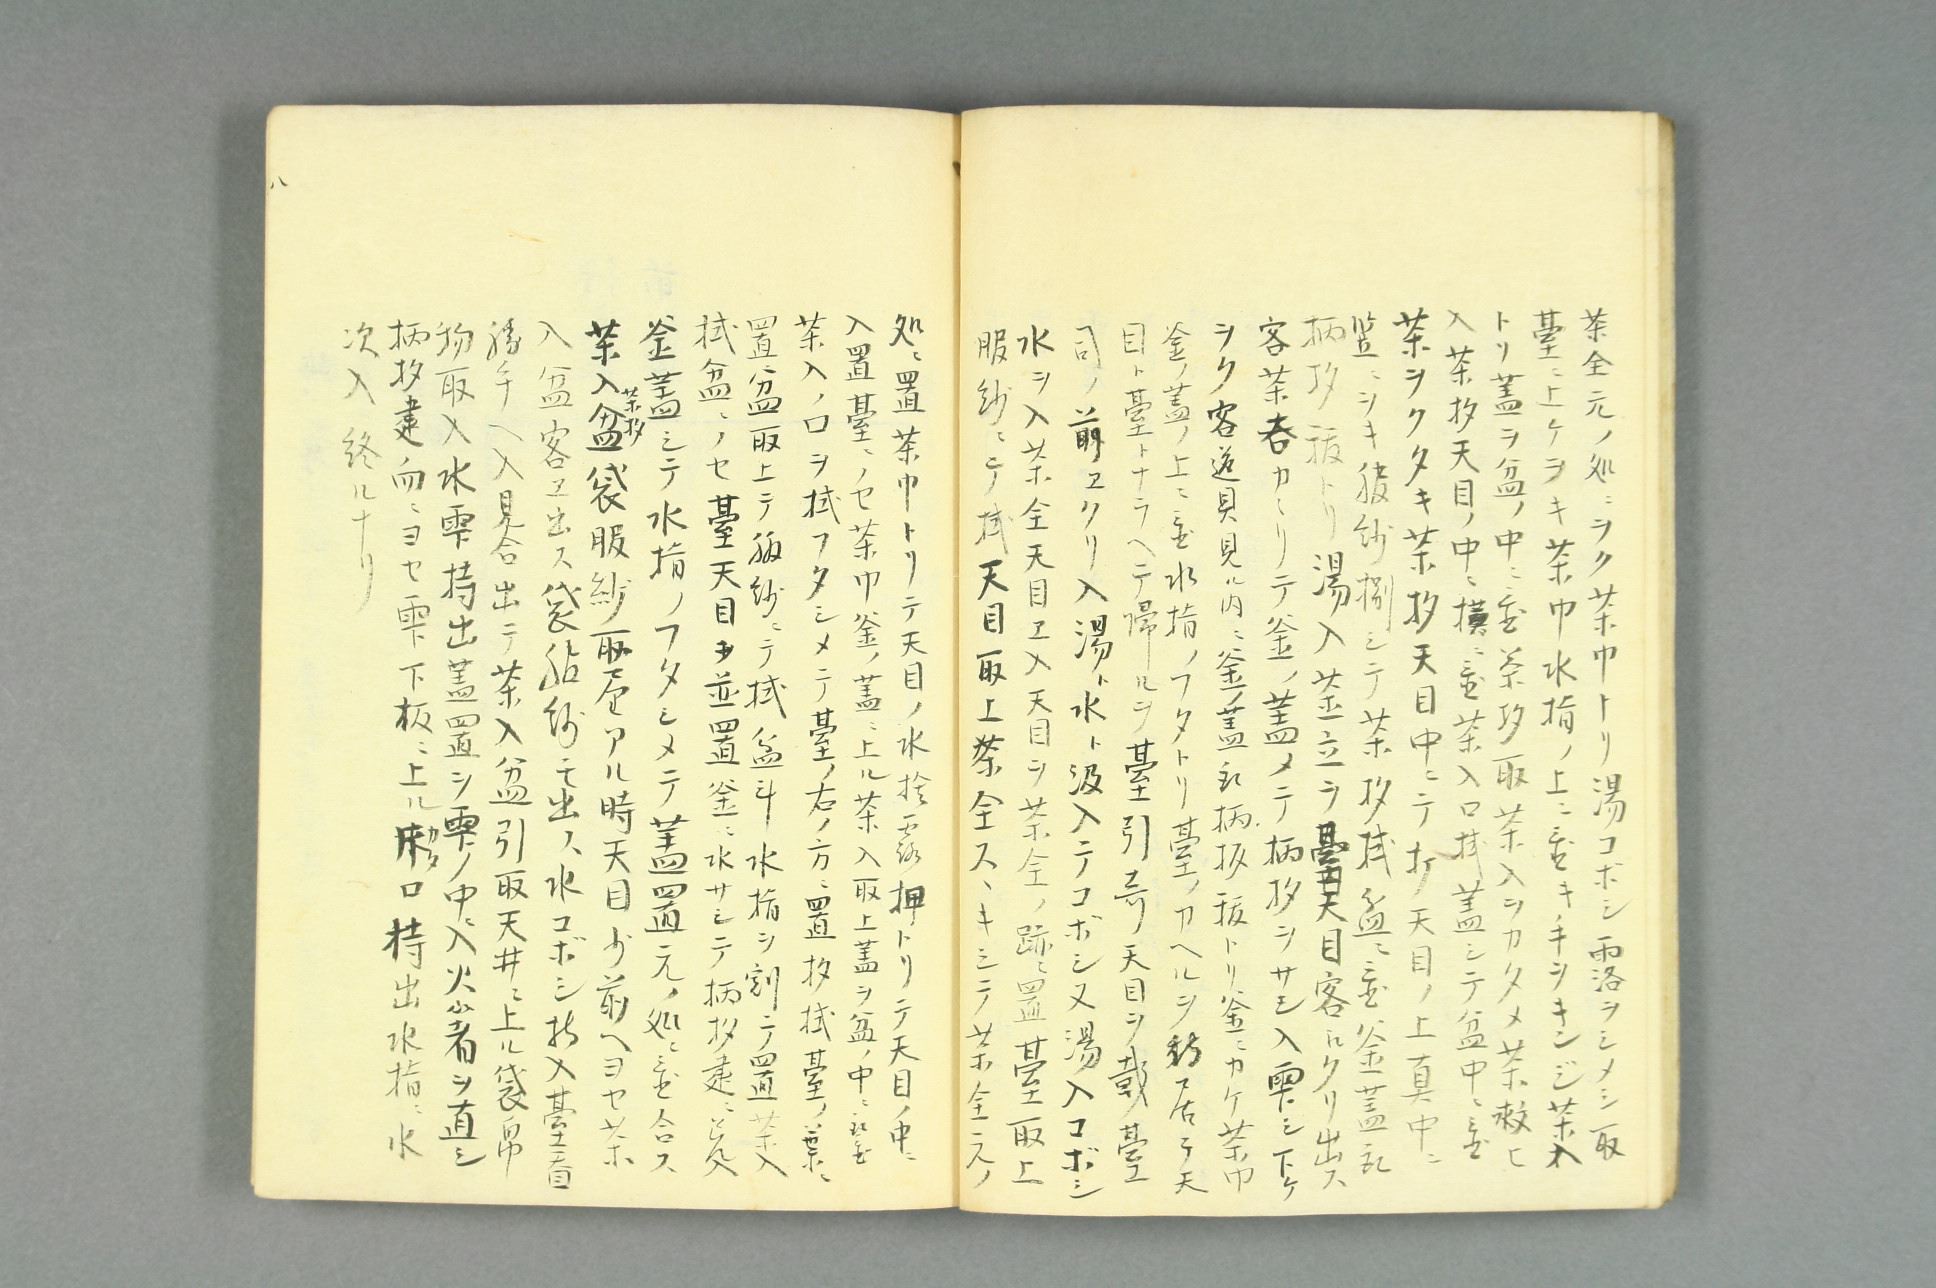 茶全元ノ処ニヲク茶巾トリ湯コボシ雫落ヲシメシ取
臺ニ上ケヲキ茶巾水指ノ上ニ置キキヲキンジ茶入
トリ蓋ヲ盆ノ中ニ置茶杓取茶入ヲカタメ茶救ヒ
入茶杓天目ノ中ニ横ニ置茶入口拭蓋シテ盆中ニ置
茶ヲクタキ茶杓天目中ニテ打天目ノ上真中ニ
ニヲキ服紗捌シテ茶杓拭盆ニ置釜蓋
柄杓扱トリ湯入茶立ヲ臺天目客ヘクリ出ス
客茶春カヽリテ釜ノ蓋メテ柄杓ヲサシ入雫シ下ケ
ヲク客道具見ル内ニ釜ノ蓋取柄扱扱トリ釜ニカケ茶巾
釜ノ蓋ノ上ニ置水指ノフタトリ臺ノカヘルヲ待居テ天
目ト臺トナラヘテ帰ルヲ臺引寄天目ヲ載臺
司ノ前ヱクリ入湯ト水ト汲入テコボシ又湯入コボシ
水ヲ入茶全天目ヱ入天目ヲ茶全ノ跡ニ置臺取上
服紗ニテ拭天目取上茶全スヽキシテ茶全元ノ
処ニ置茶巾トリテ天目ノ水捨露押トリテ天目ノ中ニ
入置臺ニノセ茶巾釜ノ蓋ニ上ル茶入取上蓋ヲ盆ノ中ニ置
茶入ノ口ヲ拭フタシメテ臺ノ右ノ方ニ置杓拭臺ノ葉ニ
置盆取上テ服紗ニテ拭盆斗水指ヲ割テ置茶入
拭盆ニノセ臺天目ヲ並置釜ニ水サシテ柄杓建ニ
釜蓋シテ水指ノフタシメテ蓋置元ノ処ニ置合ス
茶入盆茶杓袋服紗取居アル時天目少前ヘヨセ茶
入盆客ヱ出ス袋服紗モ出ス水コボシ持入臺
勝手ヘ入見合出テ茶入盆引取天井ニ上ル袋帛
物取入水雫持出蓋置ヲ雫ノ中ニ入火箸ヲ直シ
柄杓建向ニヨセ雫下板ニ上ル口持出水指ニ水
次入終ルナリ
八